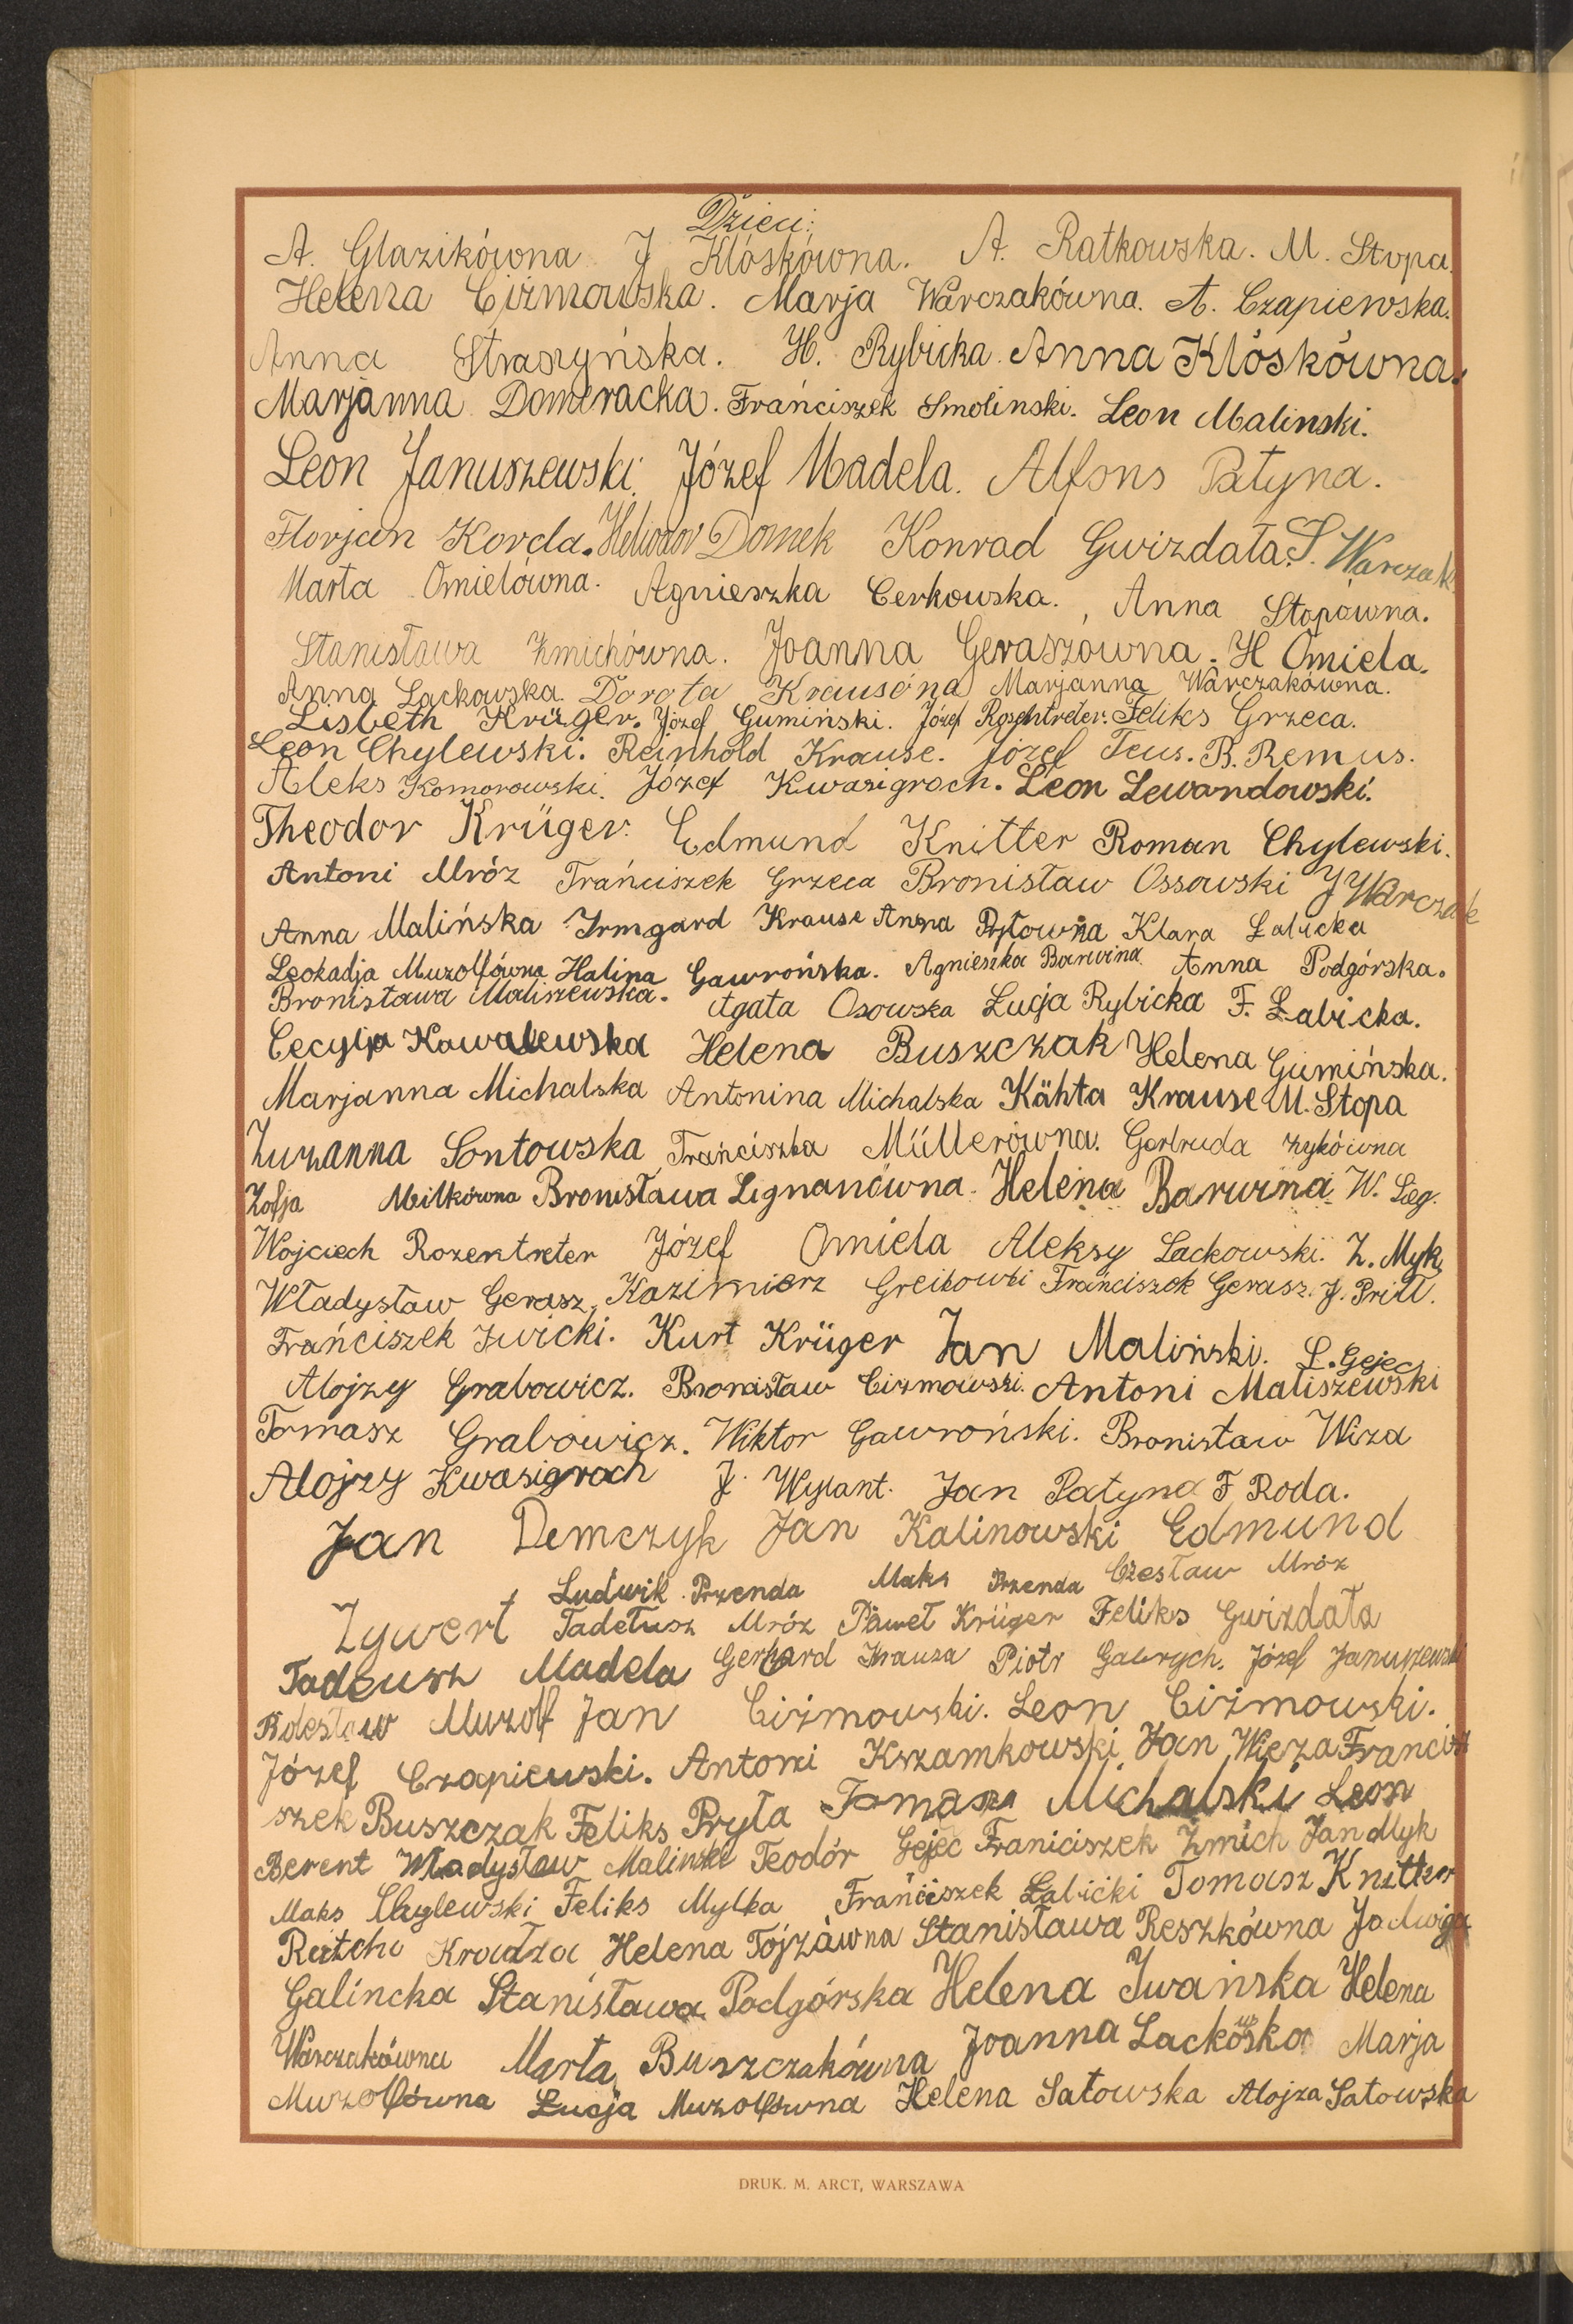 Dzieci:
A. Glazikówna J Klóskówna. A. Ratkowska. M. Stopa.
Helena Ciżmowska. Marja Warczakówna. A. Czapiewska.
Anna Straszyńska. H. Rybicka. Anna Klóskówna.
Marjanna Domeracka. Frańciszek Smolinski. Leon Malinski.
Leon Januszewski. Józef Madela. Alfons Patyna.
Florjan Korda. Heliodor Domek Konrad Gwizdała. S. Warczak
Marta Omielówna. Agnieszka Cerkowska. Anna Stopówna.
Stanisława Żmichówna. Joanna Geraszówna. H Omiela.
Anna Lackowska. Dorota Krauséna Marjanna Warczakówna.
Lisbeth Krüger. Józef Gumiński. Józef Feliks Grzeca.
Leon Chylewski. Reinhold Krause. Józef Teus. B. Remus.
Aleks Komorowski. Józef Kwasigroch. Leon Lewandowski.
Theodor Krüger. Edmund Knitter Roman Chylewski.
Antoni Mróz Frańciszek Grzeca Bronisław Ossowski J Warczak
Anna Malińska Irmgard Krause Anna Prytowna Klara Łabicka
Leokadja Muzolfówna Halina Gawrońska. Agnieszka Barwina Anna Podgórska.
Bronisława Maliszewska. Agata Osowska Łucja Rybicka F. Łabicka.
Cecylja Kowalewska Helena Buszczak Helena Gumińska.
Marjanna Michalska Antonina Michalska Kähta Krause M. Stopa
Zuzanna Sontowska Frańciszka Müllerówna. Gertruda Zykówna
Zofja Milkówna Bronisława Lignanówna. Helena Barwina W. Lieg.
Wojciech Rozentreter Józef Omiela Aleksy Lackowski. Z. Myk,
Władysław Gerasz, Kazimierz Frańciszek Gerasz. J. Prill.
Frańciszek Żwicki. Kurt Krüger Jan Maliński. L. Gejec
Alojzy Grabowicz. Bronisław Ciżmowski. Antoni Maliszewski
Tomasz Grabowicz. Wiktor Gawroński. Bronisław Wiza
Alojzy Kwasigroch J. Wylant. Jan Patyna F Roda.
Jan Demczyk Jan Kalinowski Edmund
Ludwik Przenda Maks Przenda Czesław Mróz
Zywert Tadełusz Mróz Paweł Krüger Feliks Gwizdała
Tadeusz Madela Gerhard Krauza Piotr Gabrych. Józef Januszewski
Bolesław Muzolf Jan Ciżmowski. Leon Ciżmowski.
Józef Czapiewski. Antoni Kszamkowski Jan Wieza Francisz
szek Buszczak Feliks Pryla Tomasz Michalski Leon
Berent Władysław Malinski Teodór Gejec Franiciszek Żmich Jan Myk
Maks Chylewski Feliks Mylka Frańciszek Łabicki Tomasz Knitter
Helena Tójzàwna Stanisława Reszkówna Jadwiga
Galincka Stanisława Podgórska Helena Iwańska Helena
Warczakówna Marta Buszczakówna Joanna Lackowska Marja
Muzolfówna Łucja Muzolfówna Helena Satowska Alojza Satowska
DRUK. M. ARCT, WARSZAWA